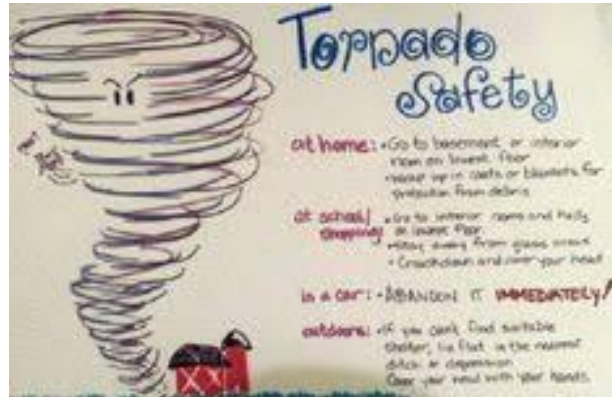 Tornado
Safety
at home: • Go to basement or interior
room on lowest floor
• wrap up in coats or blankets for
protection from debris
at school/
shopping: • Go to interior rooms and halls
on lowest floor
• Stay away from glass areas
• Crouch down and cover your head
in a car: • ABANDON IT IMMEDIATELY!
outdoors: • If you can't find suitable
shelter, lie flat in the nearest
ditch or depression
Cover your head with your hands.